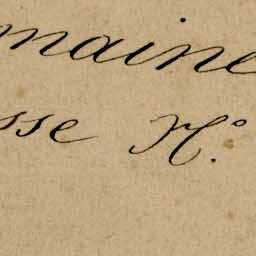 maine
sse N°.